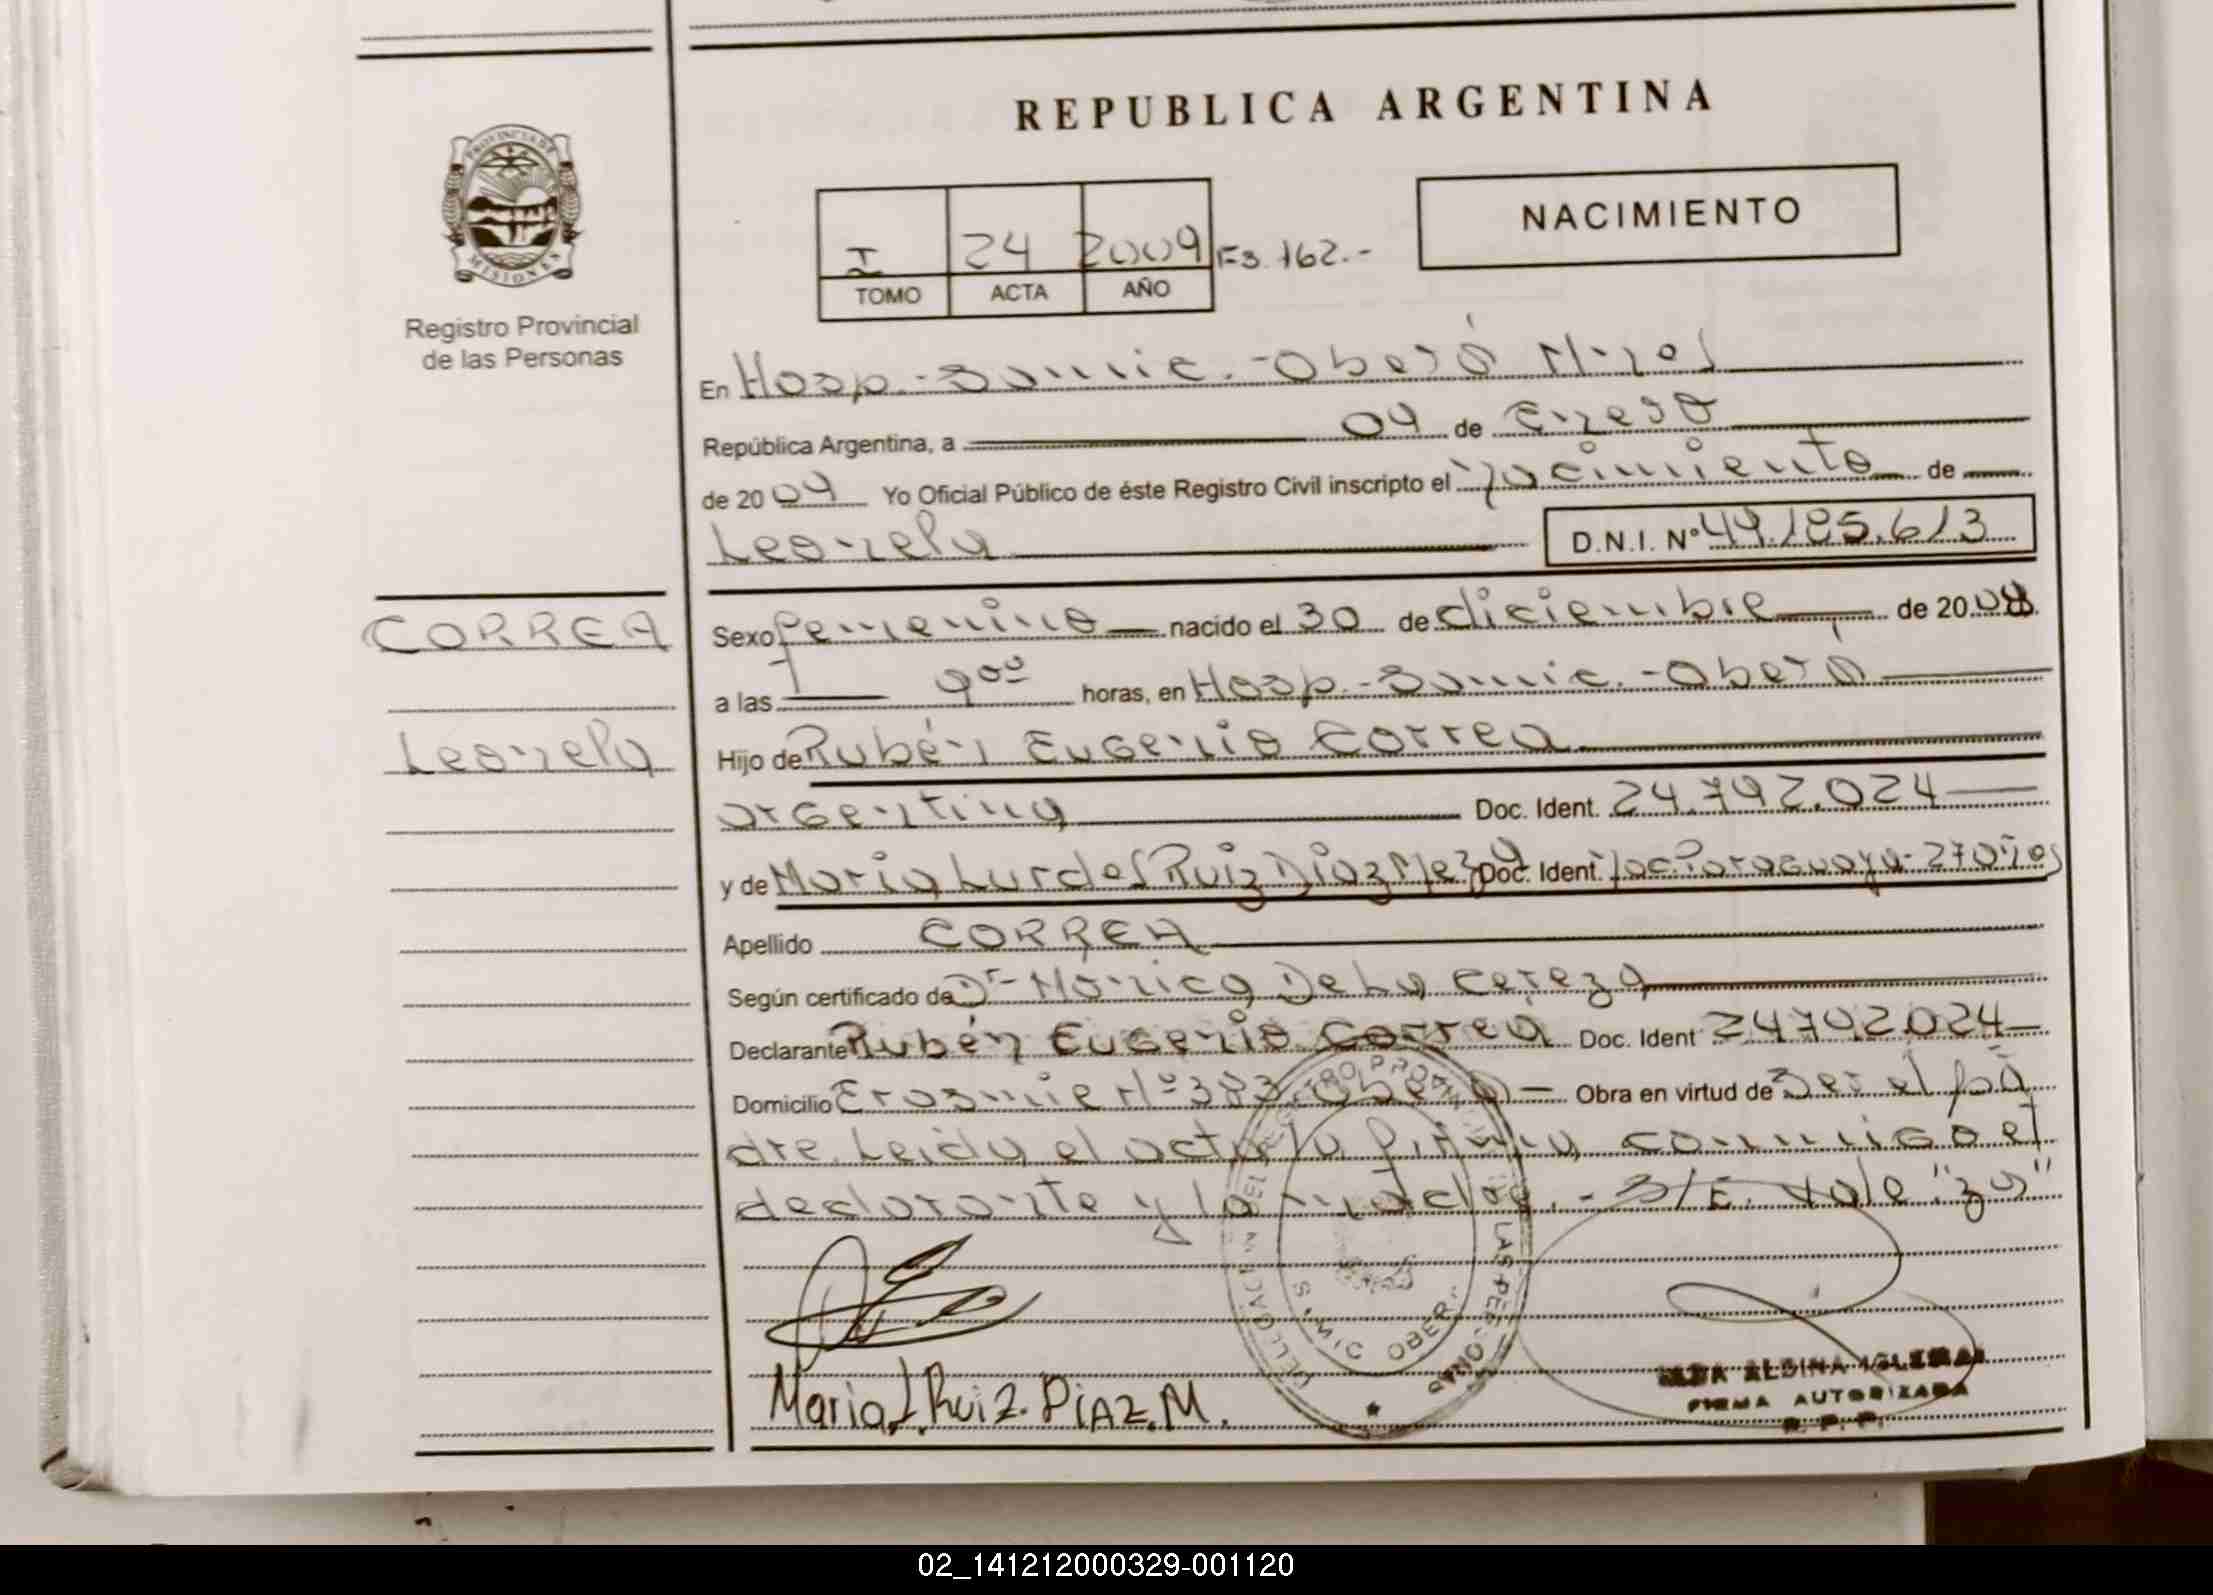 REPUBLICA ARGENTINA
PROVINCIA DE
MISIONES
Registro Provincial
de las Personas
I 24 2009 Fs. 162.-
TOMO ACTA AÑO
NACIMIENTO
En Hosp.-Samic.-Oberá M-nes
República Argentina, a 04 de Enero
de 2009 Yo Oficial Público de éste Registro Civil inscripto el nacimiento de
Leonela D.N.I. Nº 49.185.613
CORREA
Leonela
Sexo femenino nacido el 30 de diciembre de 2008.
a las 9 00 horas, en Hosp.-Samic.-Oberá
Hijo de Rubén Eugenio Correa
argentina Doc. Ident. 24.792.024
y de Maria Lurdes Ruiz Diaz Meza Doc. Ident. nac. Paraguaya-27 años
Apellido CORREA
Según certificado de Dr- Monica De La Cereza
Declarante Rubén Eugenio Correa Doc. Ident 24792.024
Domicilio Nº 383 Oberá Obra en virtud de ser el pa
dre. Leida el acta la firma conmigo el
declarante y la madre.- S/E. vale "za"
LAS PERSONAS
Maria L Ruiz. DiAZ. M.
FIRMA AUTORIZADA
R. P. P.
02_141212000329-001120